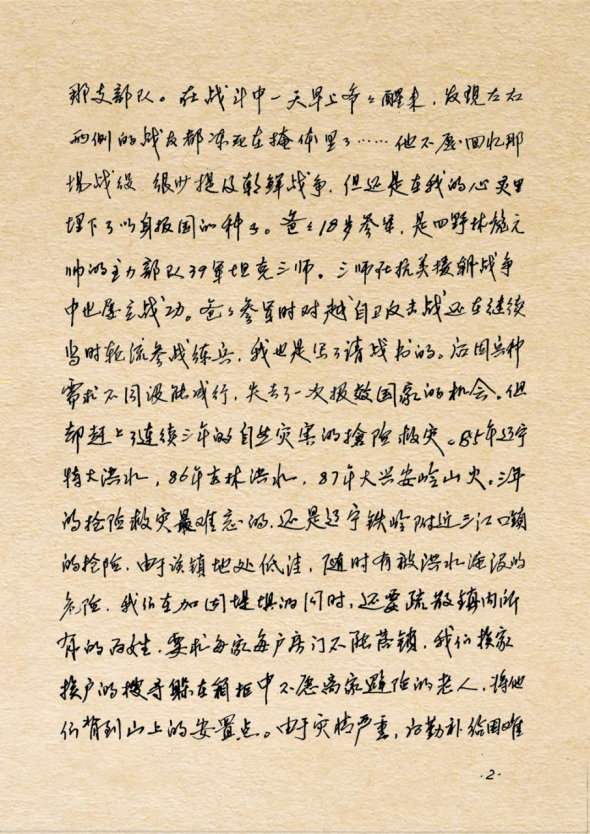 那支部队。在战斗中一天早上爷々醒来，发现左右
两侧的战友都冻死在掩体里了……他不愿回忆那
场战役 很少提及朝鲜战争，但还是在我的心灵里
埋下了以身报国的种子。爸々18岁参军，是四野林彪元
帅的主力部队39军坦克三师。三师在抗美援朝战争
中也屡立战功。爸々参军时对越自卫反击战还在继续
当时轮流参战练兵，我也是写了请战书的。后因兵种
需求不同没能成行，失去了一次报效国家的机会。但
却赶上了连续三年的自然灾害的抢险救灾。85年辽宁
特大洪水，86年吉林洪水，87年大兴安岭山火。三年
的抢险救灾最难忘的，还是辽宁铁岭附近三江口镇
的抢险，由于该镇地处低洼，随时有被洪水淹没的
危险，我们在加固堤坝的同时，还要疏散镇内所
有的百姓，要求每家每户房门不能落锁，我们挨家
挨户的搜寻躲在箱柜中不愿离家避险的老人，将他
们背到山上的安置点。由于灾情严重，后勤补给困难
·2·